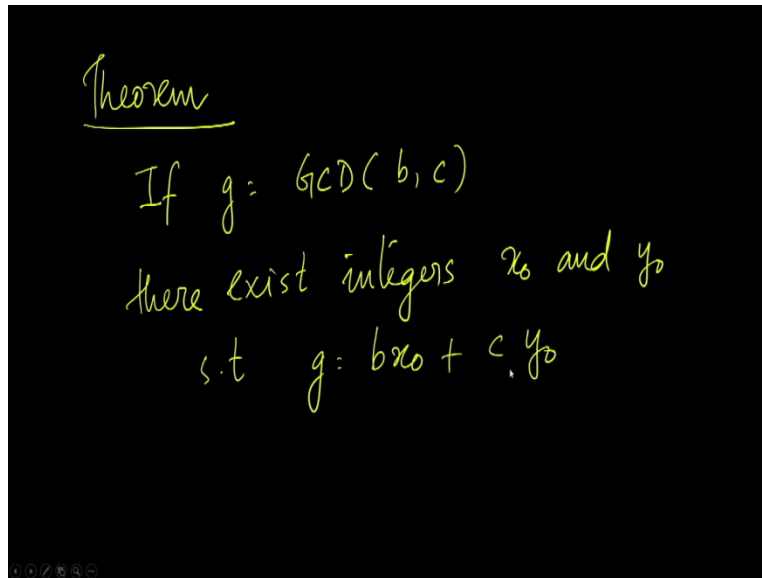 Theorem
If g = GCD(b, c)
there exist integers x₀ and y₀
s.t g = bx₀ + c.y₀